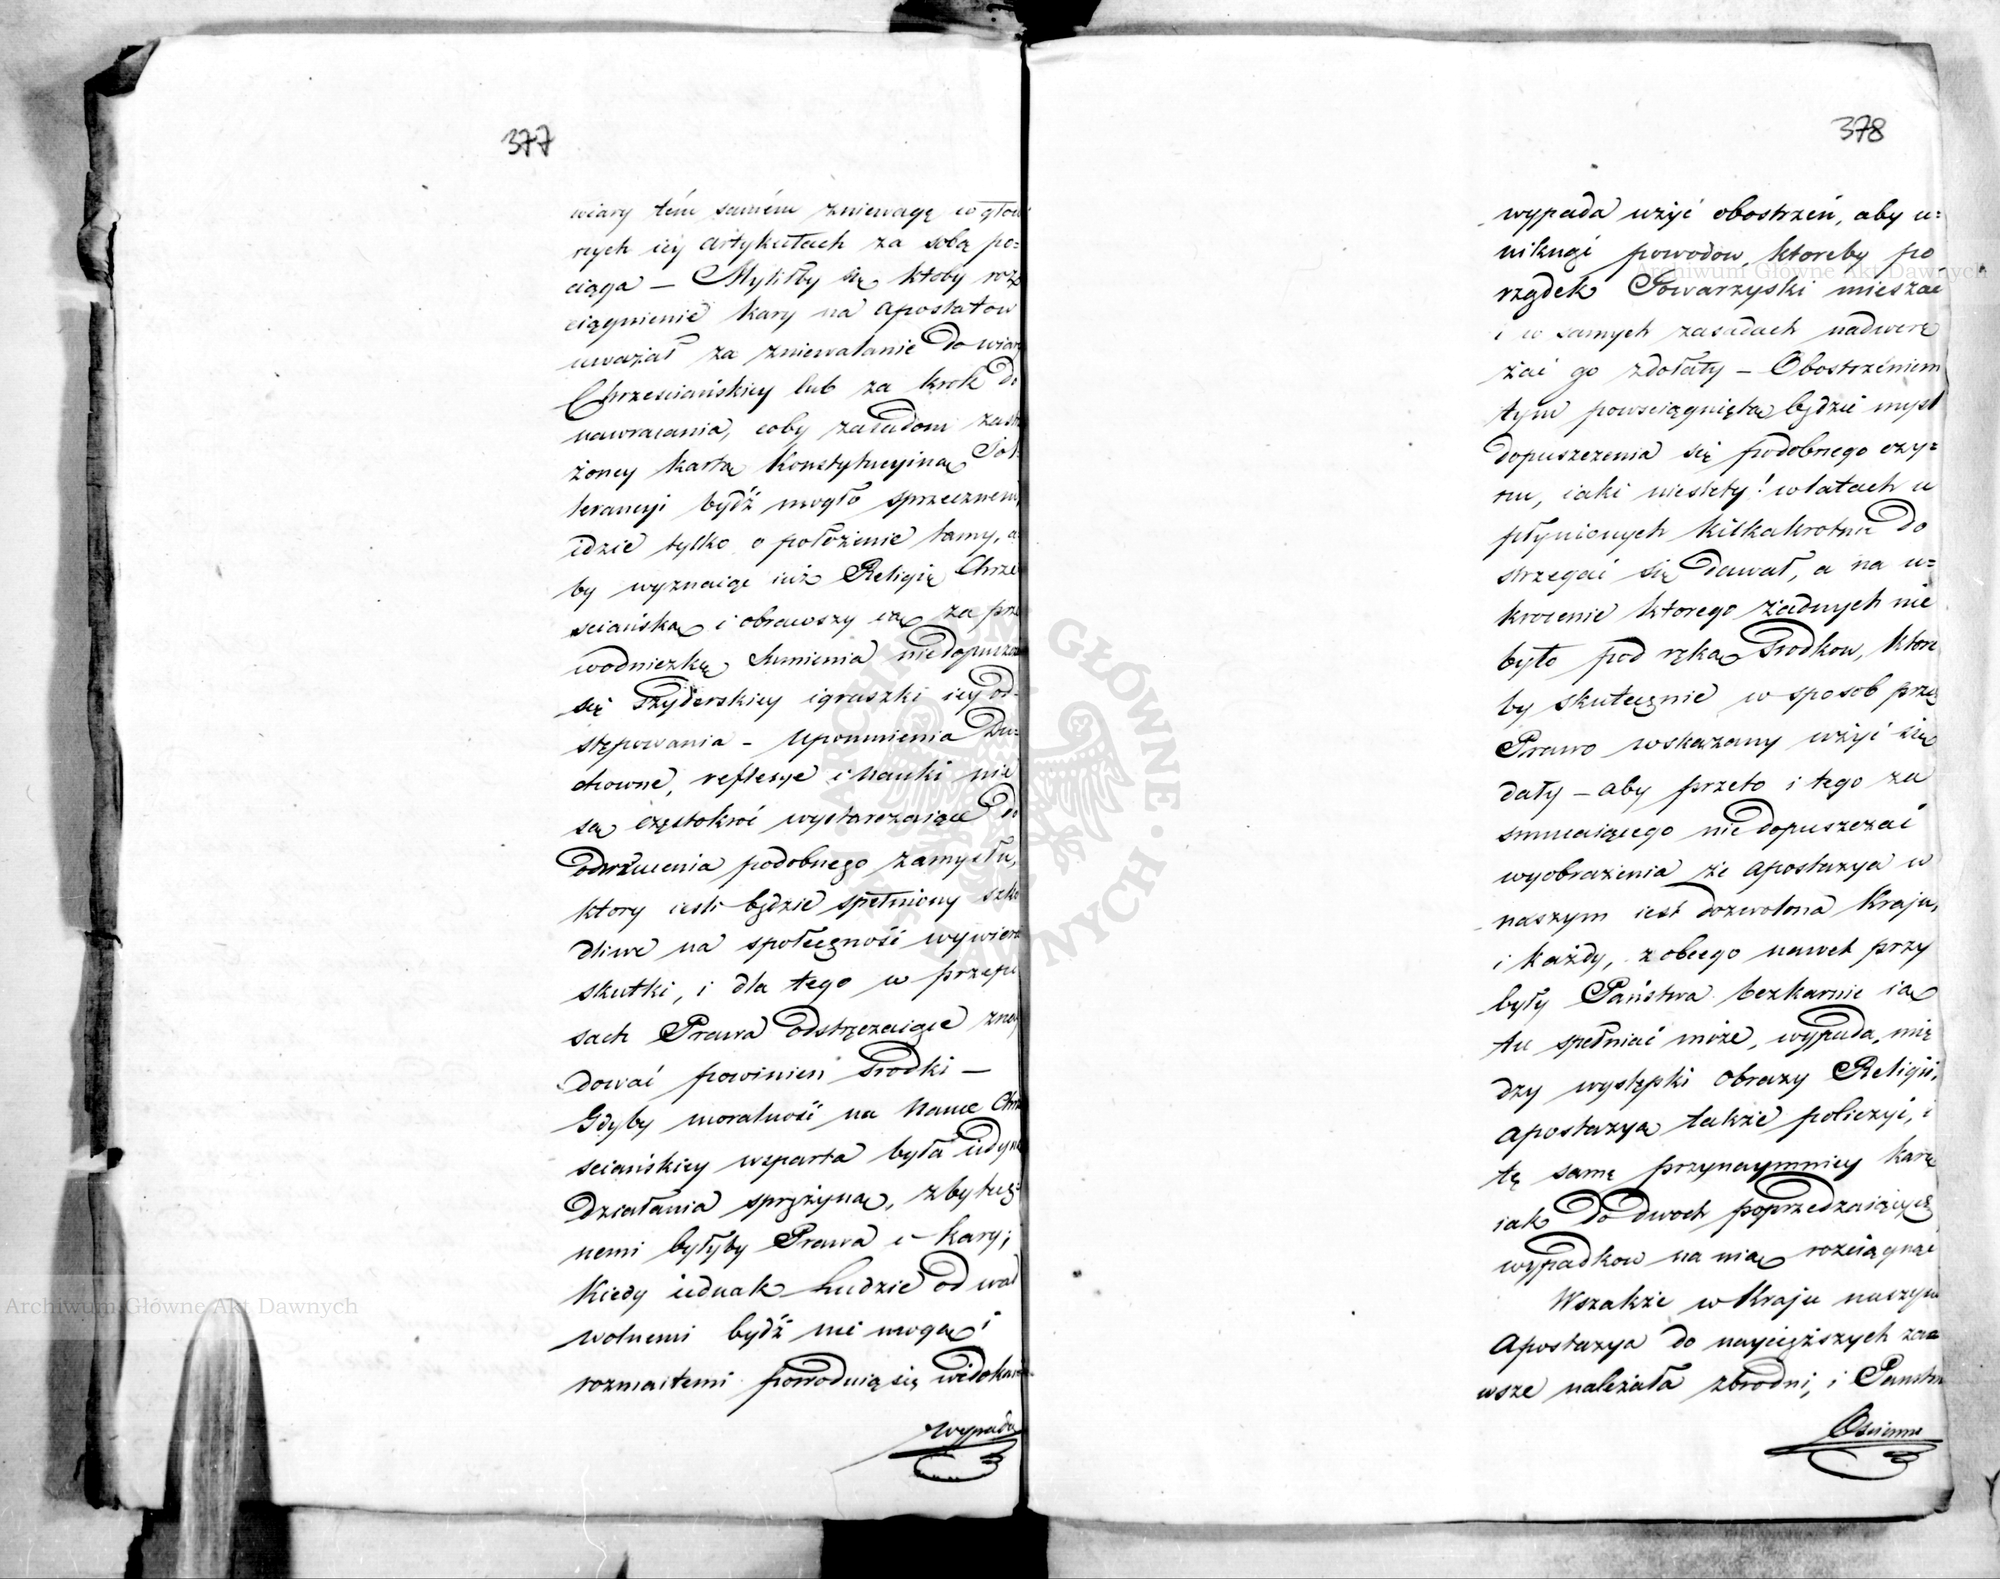 377
wiary tém samém zniewagę w głow
nych iéy Artykułach za sobą po=
ciąga — Myliłby się ktoby roz
ciągnienie kary na Apostatow
uważał za zniewalanie do wiary
Chrzesciańskiey lub za krok do
nawracania, coby zasadom zastrz
żoney kartą Konstytucyiną Tol=
lerancyi bydź mogło sprzecznem,
idzie tylko o położenie tamy, a
by wyznaiąc iuż Religię Chrze
sciańską i obrawszy ią za prze
wodniczkę Sumienia niedopuszcza
się Szyderskiey igraszki iey od=
stępowania — Upomnienia Du=
chowne, reflexye i Nauki nie
są częstokroć wystarczaiące do
odwrócenia podobnego zamysłu,
ktory iesli będzie spełniony szko
dliwe na społeczność wywiera
skutki, i dla tego w przepi
sach Prawa odstręczaiące znay
dować powinien Srodki —
Gdyby moralność na Nauce Chrze
sciańskiey wsparta była iedyną
działania sprężyną, zbytecz=
nemi byłyby Prawa i kary;
Kiedy iednak Ludzie od wad
wolnemi bydź nie mogą i
rozmaitemi powodnią się widokami
wypada
378
wypada użyć obostrzeń, aby u=
niknąć powodow, ktoreby po
rządek Towarzyski mieszać
i w samych zasadach nadwerę
żać go zdołały — Obostrzeniem
tym powsciągnięta będzie mysl
dopuszczenia się podobnego czy=
nu, iaki niestety! w latach u
płynionych kilkakrotnie do
strzegać się dawał, a na u=
krocenie ktorego żadnych nie
było pod ręką Srodkow, ktore
by skutecznie w sposob przez
Prawo wskazany użyć się
dały — aby przeto i tego za
smucaiącego nie dopuszczać
wyobrażenia że Apostazya w
naszym iest dozwolona Kraju,
i każdy, z obcego nawet przy
były Państwa bezkarnie ią
tu spełniać może, wypada, mię
dzy występki obrazy Religii,
Apostazyą także policzyć, i
tę samę przynaymniey karę
iak do dwoch poprzedzaiących
wypadkow na nią rozciągnąć
Wszakże w Kraju naszym
Apostazya do naycięższych za
wsze należała zbrodni, i Państw
Oscienne
Archiwum Główne Akt Dawnych
Archiwum Główne Akt Dawnych
ARCHIWUM GŁÓWNE AKT DAWNYCH